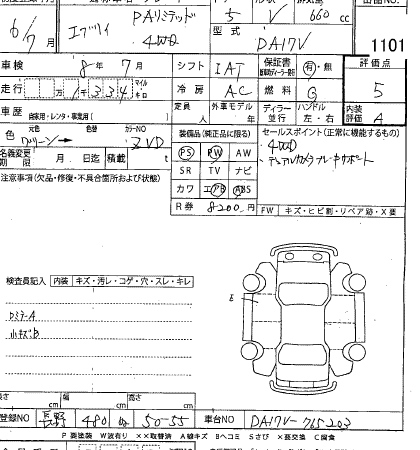 PAリミテッド 5 V 660 cc
6/7月 エブリイ 4WD 型式 DA17V 1101
車検 8年 7月 シフト IAT 保証書 有・無 評価点
走行 万 1千 3 3 4 マイル キロ 冷房 AC 燃料 G 5
車歴 自家用・レンタ・事業用( ) 定員 人 外車モデル 年 ディーラー 並行 ハンドル 左・右 内装評価 A
色 元色 グリーン→ 色替 カラーNO ZVD 装備品(純正品に限る) セールスポイント(正常に機能するもの)
名義変更期限 月 日迄 積載 t PS PW AW 4WD
注意事項(欠品・修復・不具合箇所および状態) SR TV ナビ デュアルカメラブレーキサポート
カワ エアB ABS
R券 8200円 FW キズ・ヒビ割・リペア跡・X要
検査員記入 内装 キズ・汚レ・コゲ・穴・スレ・キレ
E
ロミテーA
小キズB
長さ cm 幅 cm 高さ cm
登録NO 長野 480 い 50-55 車台NO DA17V-765203
P要塗装 W波有り ××取替済 A線キズ Bヘコミ Sさび ×要交換 C腐食